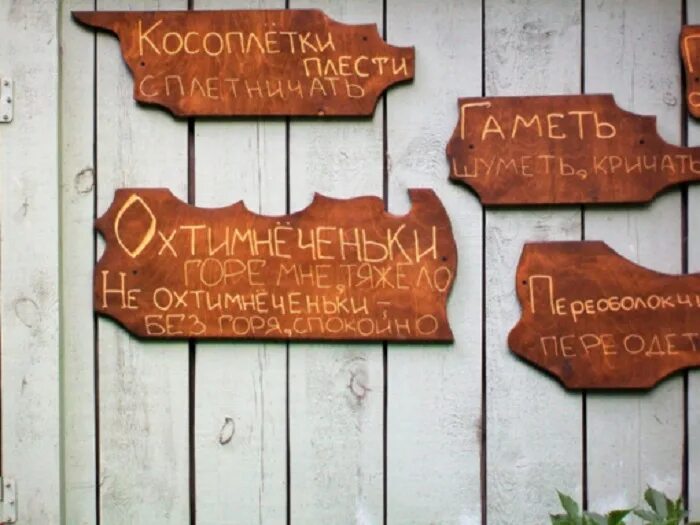 Косоплётки
плести
сплетничать
Гаметь
шуметь, кричать
Охтимнёченьки
горе мне, тяжело
Не охтимнёченьки –
без горя, спокойно